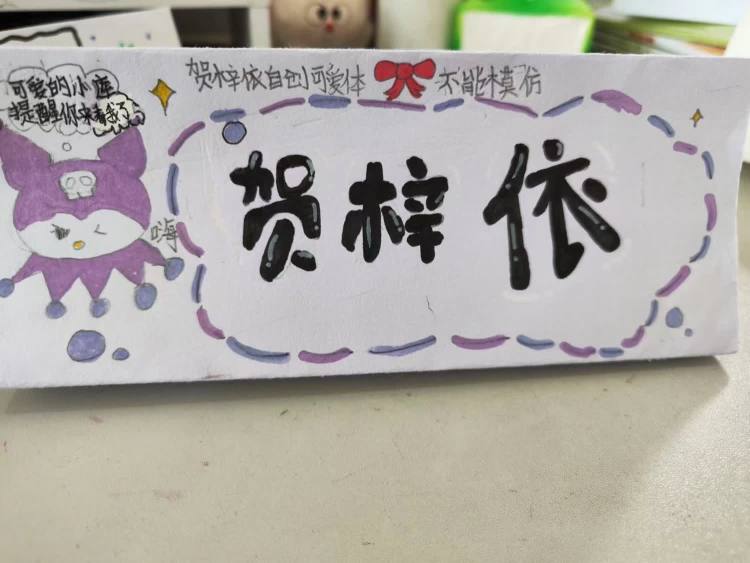 贺梓依自创可爱体 不能模仿
可爱的小库
提醒你来看我了
嗨
贺梓依